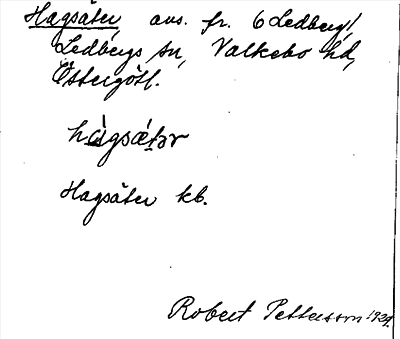 Hagsäter avs. fr. 6 Ledberg,
Ledbergs sn, Valkebo hd,
Östergötl.
hàgsǽtər
Hagsäter kb.
Robert Petterson 1929.